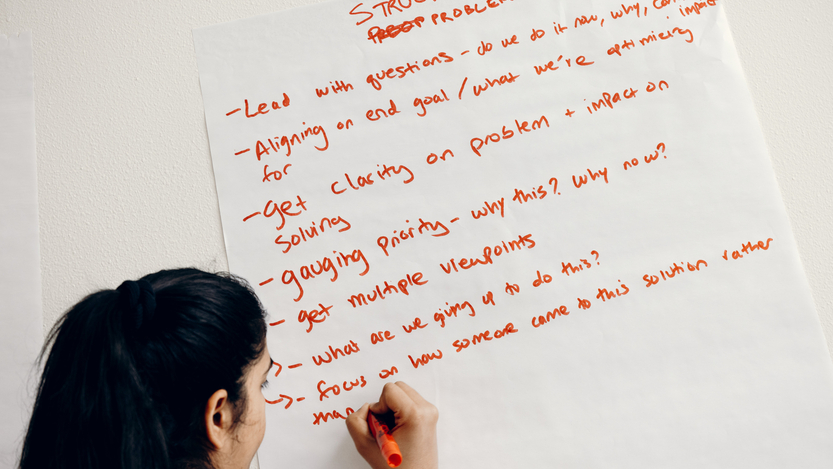 PROBLEM
- Lead with questions - do we do it now, why,
- Aligning on end goal / what we're optimizing impact
for
- get clarity on problem + impact on
solving
- gauging priority - why this? why now?
- get multiple viewpoints
- what are we giving up to do this?
- focus on how someone came to this solution rather